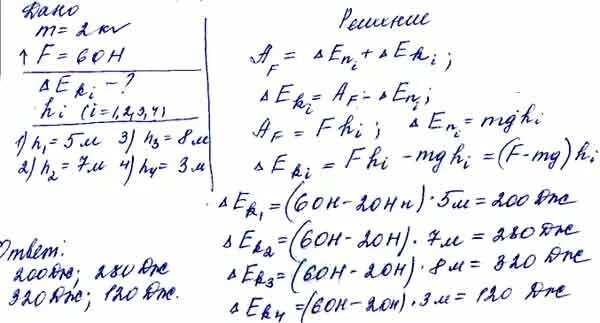 Дано
m = 2 кг
↑ F = 60Н
ΔE_{k_i} - ?
h_i (i=1,2,3,4)
1) h_1 = 5м 3) h_3 = 8м
2) h_2 = 7м 4) h_4 = 3м
Решение
A_F = ΔE_{п_i} + ΔE_{k_i};
ΔE_{k_i} = A_F - ΔE_{п_i};
A_F = Fh_i; ΔE_{п_i} = mgh_i
ΔE_{k_i} = Fh_i - mgh_i = (F-mg)h_i
ΔE_{k_1} = (60Н - 20Н) · 5м = 200 Дж
ΔE_{k_2} = (60Н - 20Н) · 7м = 280 Дж
ΔE_{k_3} = (60Н - 20Н) · 8м = 320 Дж
ΔE_{k_4} = (60Н - 20Н) · 3м = 120 Дж
Ответ:
200Дж; 280Дж
320Дж; 120Дж.